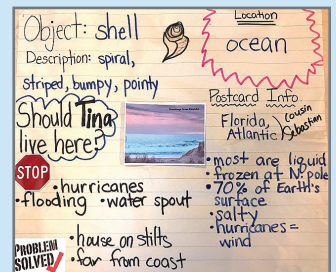 Object: shell
Description: spiral,
striped, bumpy, pointy
Location
ocean
Should Tina
live here?
Postcard Info.
Florida,
Atlantic
(cousin
Sebastian)
STOP
• hurricanes
• flooding • water spout
• most are liquid
• frozen at N. pole
• 70% of Earth's
surface
• salty
• hurricanes =
wind
PROBLEM
SOLVED
• house on stilts
• far from coast